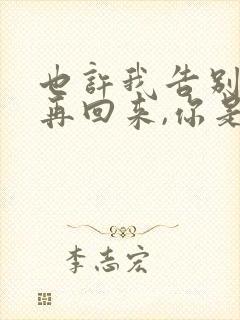 也许我告别
再回来,你是
李志宏